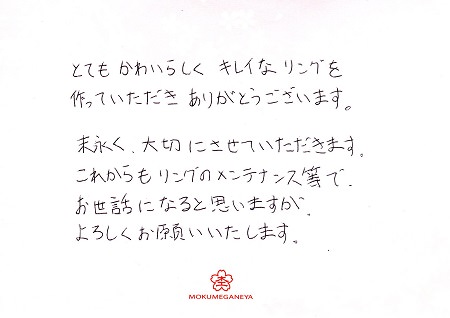 とても かわいらしく キレイな リングを
作っていただき ありがとうございます。
末永く、大切にさせていただきます。
これからも リングのメンテナンス等で、
お世話になると思いますが、
よろしくお願いいたします。
杢
MOKUMEGANEYA